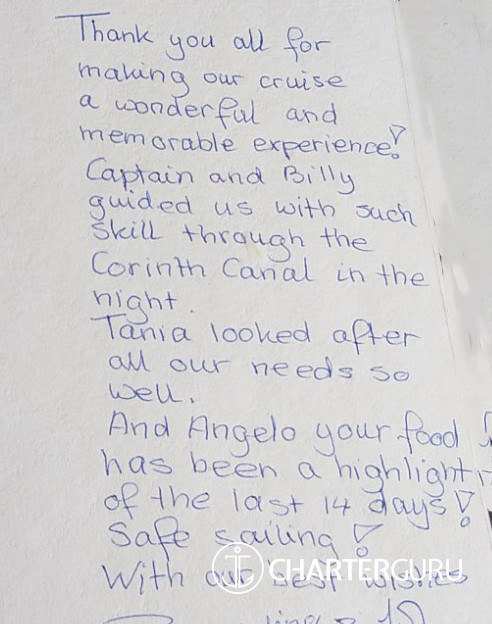 Thank you all for
making our cruise
a wonderful and
memorable experience!
Captain and Billy
guided us with such
skill through the
Corinth Canal in the
night.
Tania looked after
all our needs so
well.
And Angelo your food
has been a highlight
of the last 14 days!
Safe sailing!
With our best wishes
CHARTERGURU